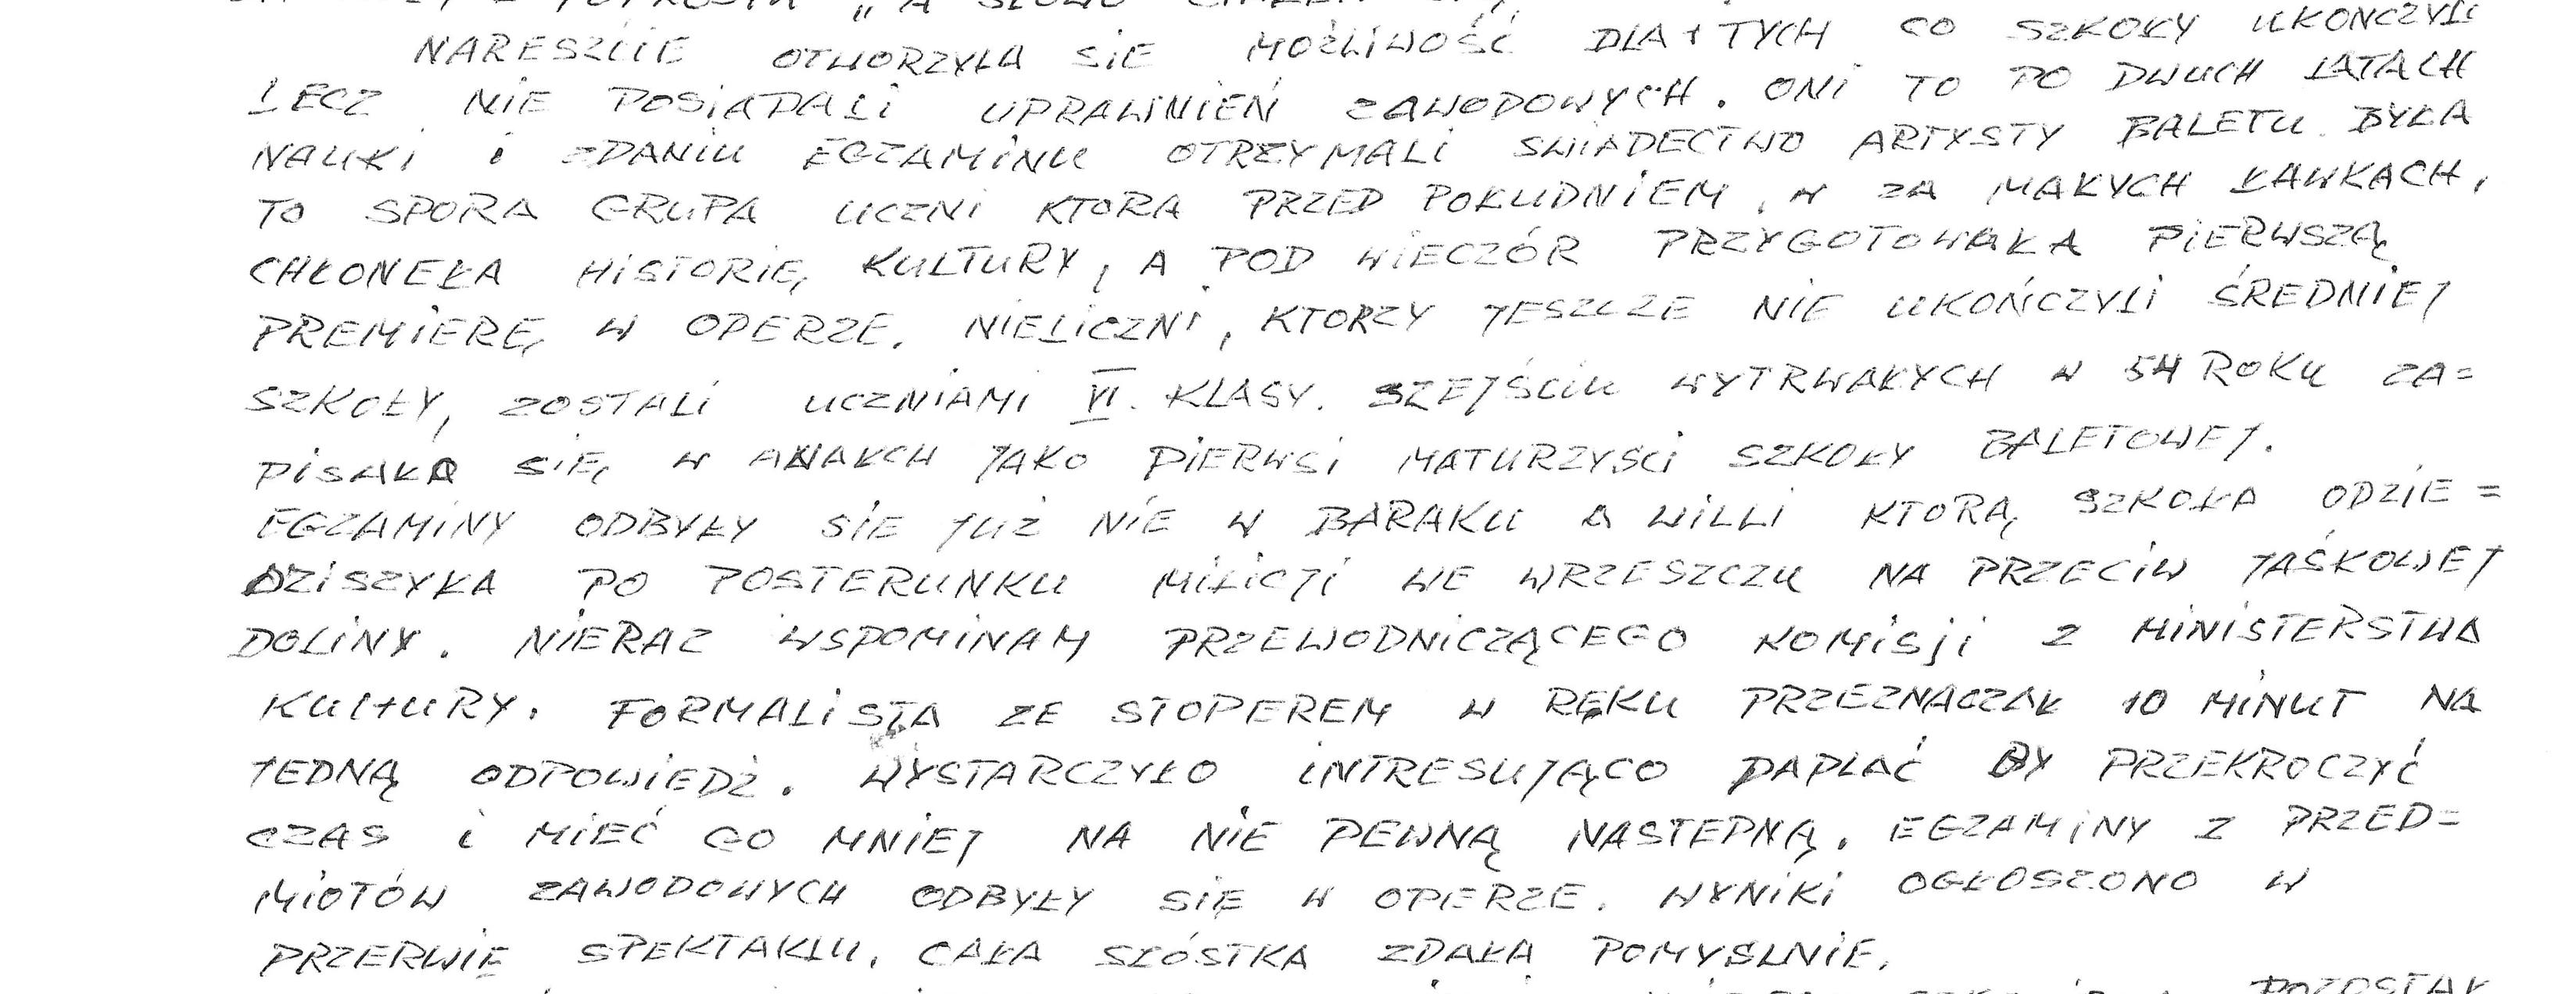 NARESZCIE OTWORZYŁA SIE MOŻLIWOŚĆ DLA TYCH CO SZKOŁY UKONCZYLI
LECZ NIE POSIADALI UPRAWNIEŃ ZAWODOWYCH. ONI TO PO DWUCH LATACH
NAUKI I ZDANIU EGZAMINU OTRZYMALI SWIADECTWO ARTYSTY BALETU. BYŁA
TO SPORA GRUPA UCZNI KTORA PRZED POŁUDNIEM, W ZA MAŁYCH ŁAWKACH,
CHŁONEŁA HISTORIĘ, KULTURY, A POD WIECZÓR PRZYGOTOWAŁA PIERWSZĄ
PREMIERĘ W OPERZE. NIELICZNI, KTORZY JESZCZE NIE UKOŃCZYLI ŚREDNIEJ
SZKOŁY, ZOSTALI UCZNIAMI VI. KLASY. SZEJŚCIU WYTRWAŁYCH W 54 ROKU ZA=
PISAŁO SIĘ W ANAŁCH JAKO PIERWSI MATURZYŚCI SZKOŁY BALETOWEJ.
EGZAMINY ODBYŁY SIE JUŻ NIE W BARAKU A WILLI KTORĄ SZKOŁA ODZIE=
DZISZYŁA PO POSTERUNKU MILICJI WE WRZESZCZU NA PRZECIW JAŚKOWEJ
DOLINY. NIERAZ WSPOMINAM PRZEWODNICZĄCEGO KOMISJI Z MINISTERSTWA
KULTURY. FORMALISTA ZE STOPEREM W RĘKU PRZEZNACZAŁ 10 MINUT NA
JEDNĄ ODPOWIEDŻ. WYSTARCZYŁO INTRESUJĄCO PAPLAĆ BY PRZEKROCZYĆ
CZAS I MIEĆ GO MNIEJ NA NIE PEWNĄ NASTEPNĄ. EGZAMINY Z PRZED=
MIOTÓW ZAWODOWYCH ODBYŁY SIĘ W OPERZE. WYNIKI OGŁOSZONO W
PRZERWIE SPEKTAKLU. CAŁA SZÓSTKA ZDAŁA POMYSLNIE.
POZOSTAŁ